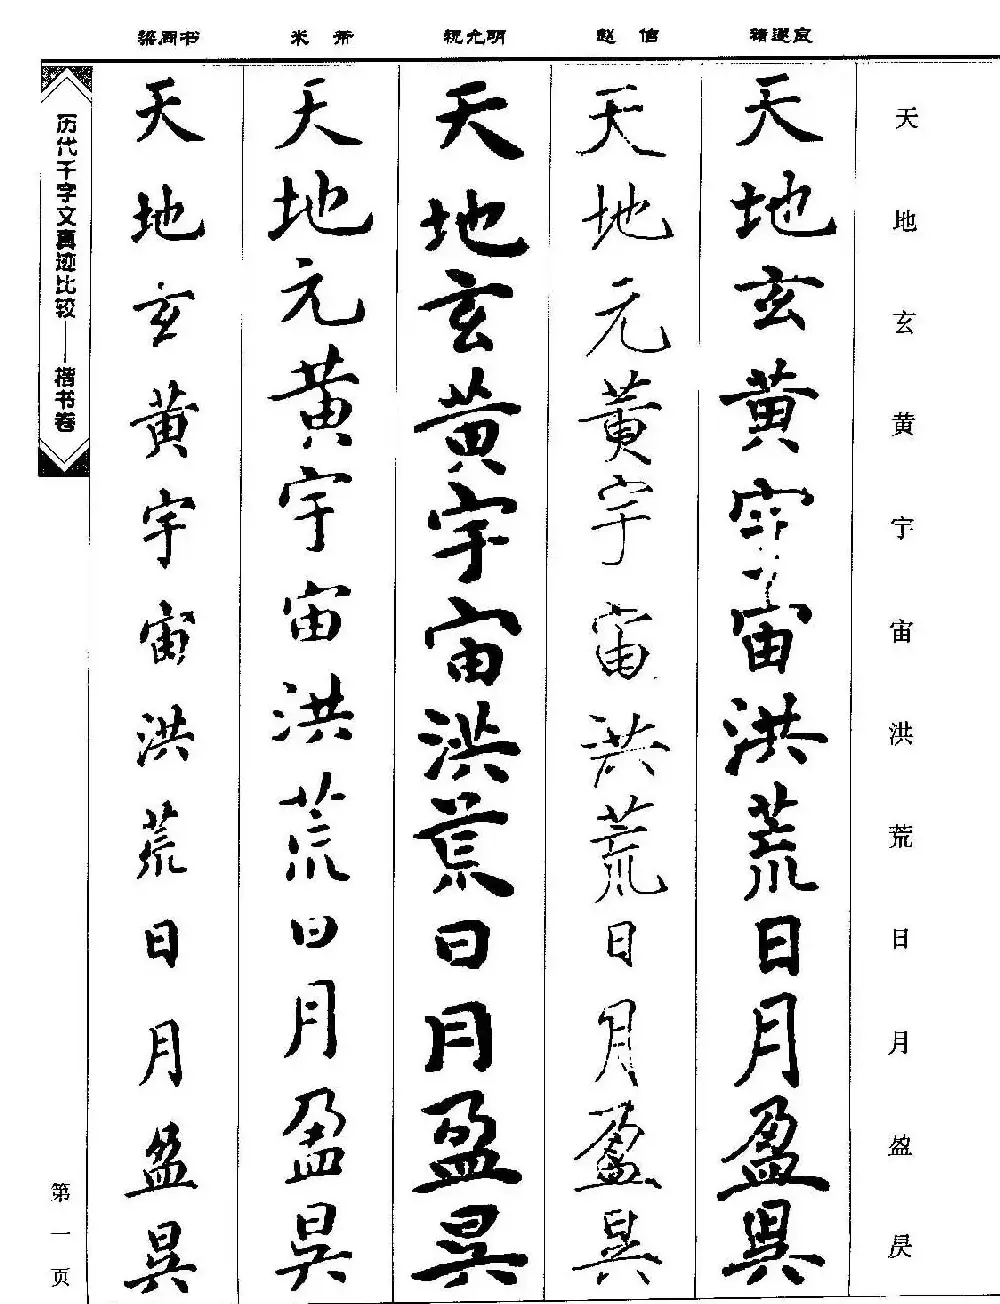 褚遂良
赵佶
祝允明
米芾
梁同书
天地玄黄宇宙洪荒日月盈昃
天地玄黄宇宙洪荒日月盈昃
天地元黄宇宙洪荒日月盈昃
天地玄黄宇宙洪荒日月盈昃
天地元黄宇宙洪荒日月盈昃
天地玄黄宇宙洪荒日月盈昃
历代千字文真迹比较——楷书卷
第一页